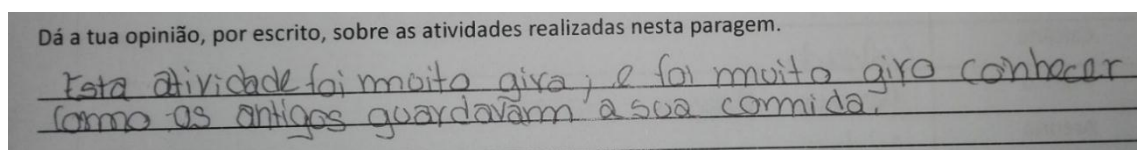 Dá a tua opinião, por escrito, sobre as atividades realizadas nesta paragem.
Esta atividade foi muito gira, e foi muito giro conhecer
como os antigos guardavam a sua comida.